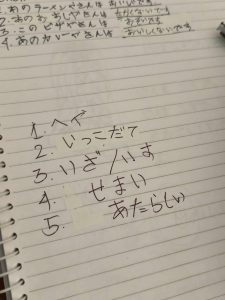 1.あのラーメンやさんは おいしいです
2.あの
3.この ピザやさんは おおきいです
4.あのカレーやさんは おいしくないです
1.へや
2.いっこだて
3.いぎ/いす
4.せまい
5.あたらしい